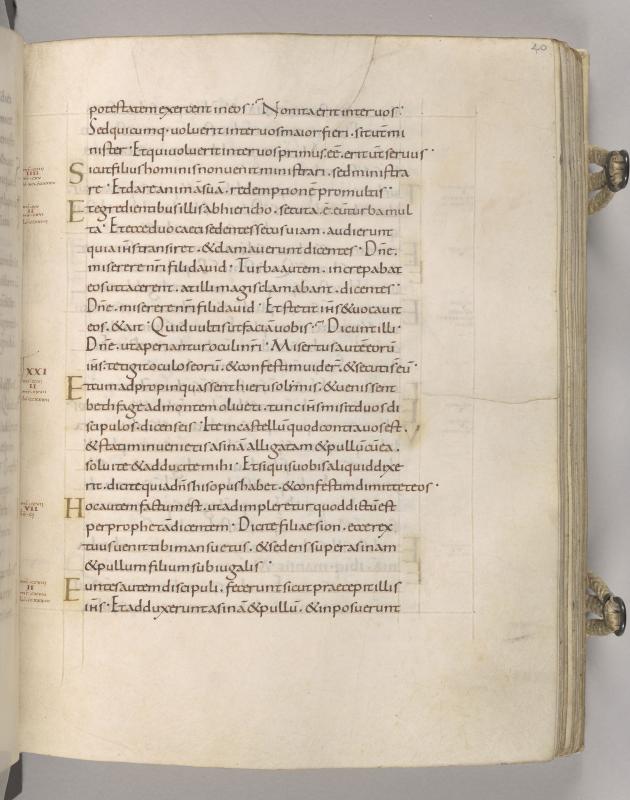 40
potestatem exercent in eos · Non ita erit inter vos ·
Sed quicumq · voluerit inter vos maior fieri · sit ut mi
nister · Et qui voluerit inter vos primus eē · erit ut servus ·
Sicut filius hominis non venit ministrari · sed ministra
re · Et dare animā suā · redemptionē pro multis ·
Et egredientibus illis ab hiericho · secuta · ē · eū turba mul
ta · Et ecce duo caeci sedentes secus viam · audierunt
quia ihs transiret · & clamaverunt dicentes · Dn̄e ·
miserere nr̄i fili david · Turba autem · increpabat
eos ut tacerent · at illi magis clamabant · dicentes ·
Dn̄e · miserere nr̄i fili david · Et stetit ihs & vocavit
eos · & ait · Quid vultis ut faciā vobis · Dicunt illi ·
Dn̄e · ut aperiantur oculi nr̄i · Misertus autē eorū
ihs · tetigit oculos eorū · & confestim viderꝛ · & secuti sꝉ eū ·
XXI
II
Et cum adpropinquassent hierusolimis · & venissent
bethfage ad montem oliveti · tunc ihs misit duos di
scipulos · dicens eis · Ite in castellū quod contra vos est ·
& statim invenietis asinā alligatam & pullū cū ea ·
solvite & adducite mihi · Et si quis vobis aliquid dixe
rit · dicite quia dn̄s his opus habet · & confestim dimittet eos ·
VII
Hoc autem factum est · ut adimpleretur quod dictū est
per prophetā dicentem · Dicite filiae sion · ecce rex
tuus venit tibi mansuetus · & sedens super asinam
& pullum filium subiugalis ·
II
Euntes autem discipuli · fecerunt sicut praecepit illis
ihs · Et adduxerunt asinā & pullū · & inposuerunt